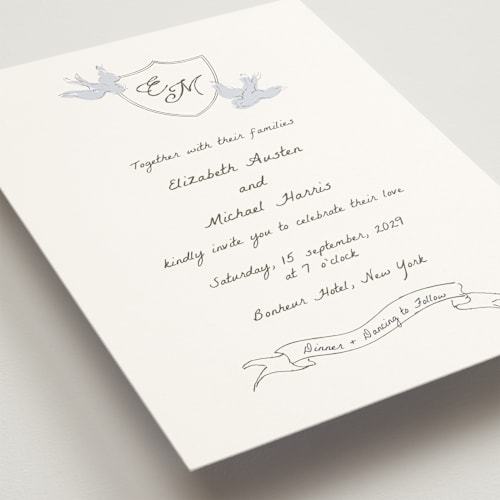 E M
Together with their families
Elizabeth Austen
and
Michael Harris
kindly invite you to celebrate their love
Saturday, 15 september, 2029
at 7 o'clock
Bonheur Hotel, New York
Dinner + Dancing to Follow